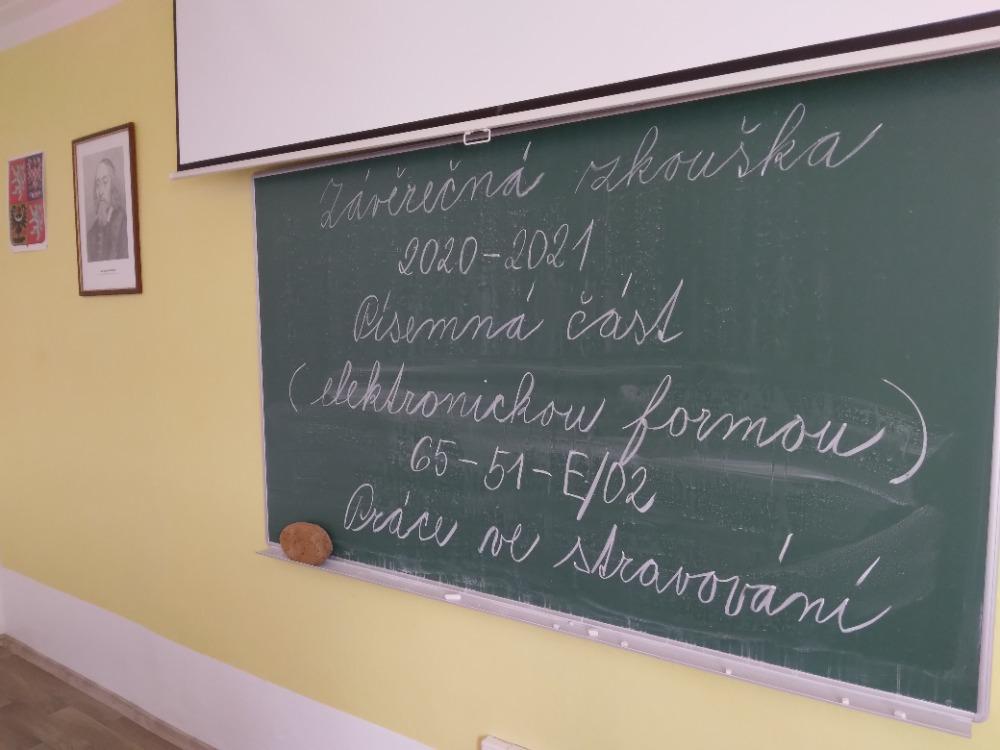 Závěrečná zkouška
2020-2021
Písemná část
(elektronickou formou)
65-51-E/02
Práce ve stravování